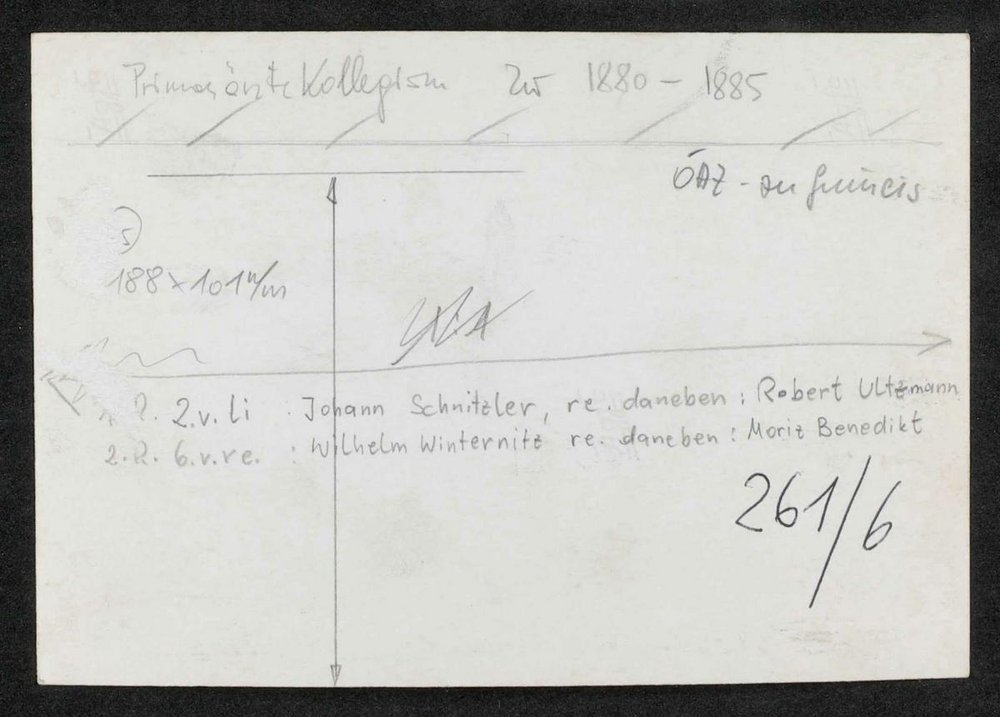 Primarärzte Kollegium Zw 1880 – 1885
ÖÄZ -
5)
188 × 101 m/m
R. 2.v.li : Johann Schnitzler, re. daneben : Robert Ultzmann
2.R. 6.v.re. : Wilhelm Winternitz re. daneben : Moriz Benedikt
261/6